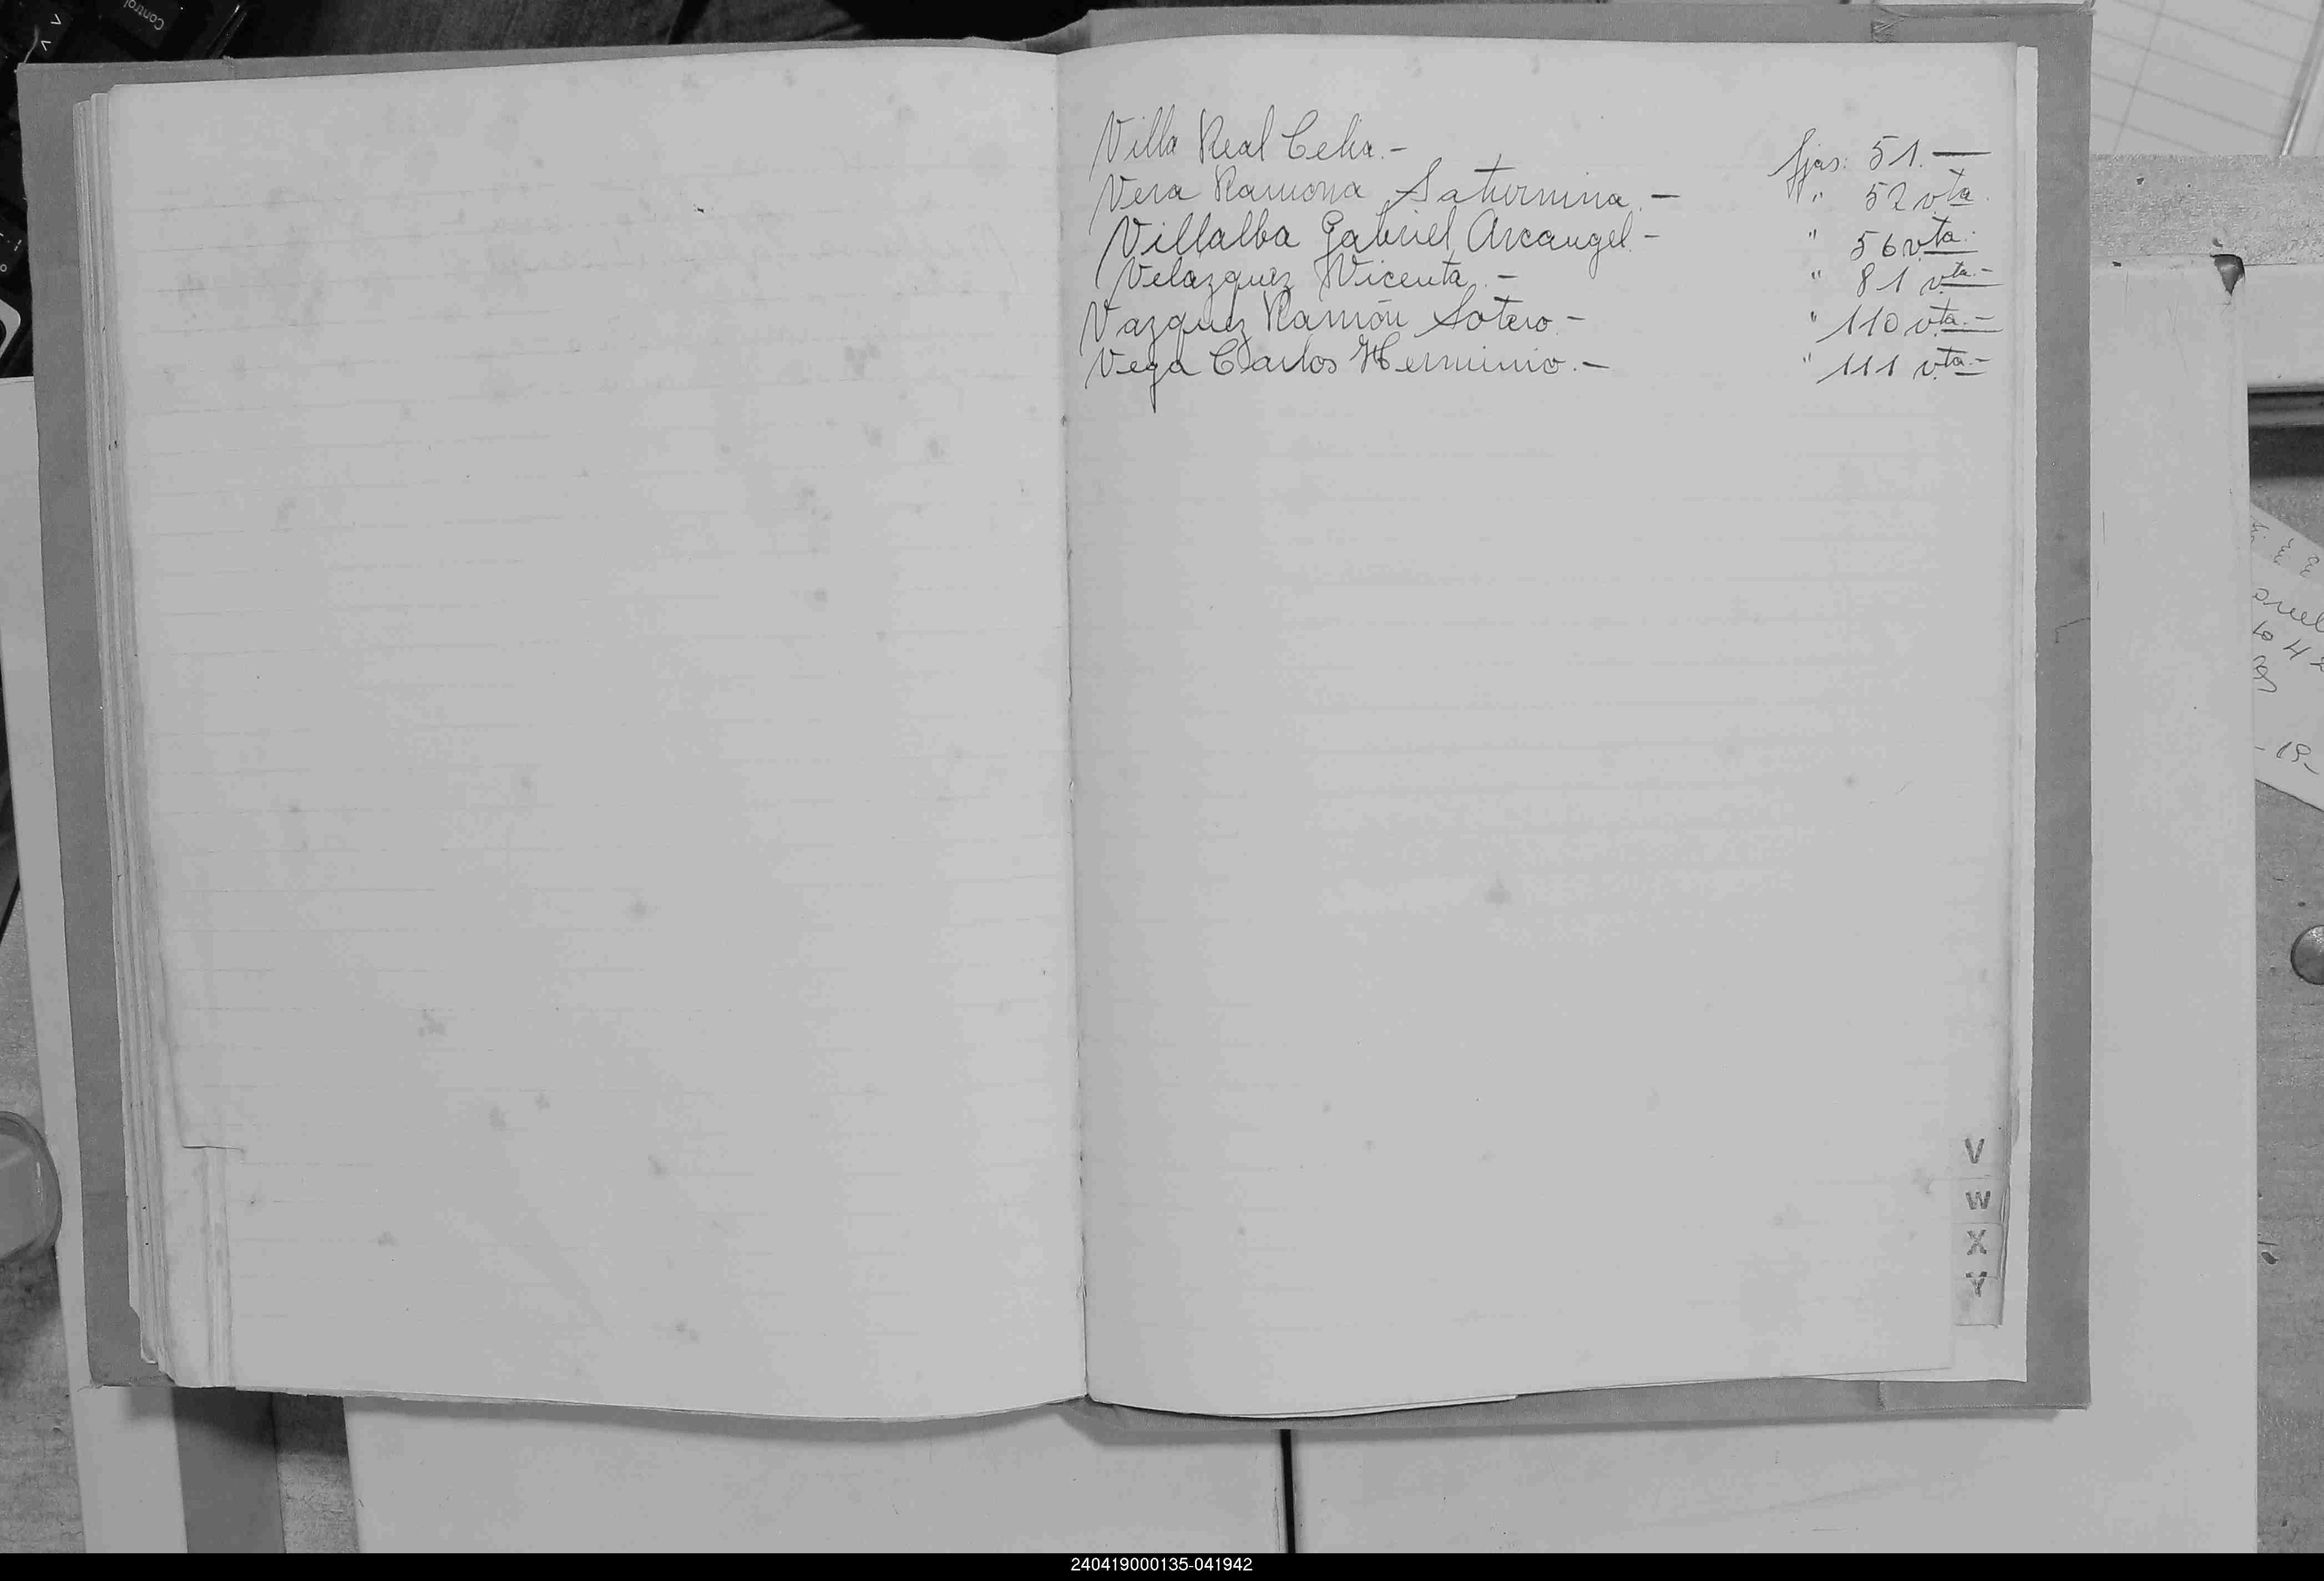 Villa Real Celia.- fjas: 51.—
Vera Ramona Saturnina.- " 52 vta.
Villalba Gabriel Arcangel.- " 56 vta.
Velazquez Vicenta.- " 81 vta.-
Vazquez Ramón Sotero.- " 110 vta.-
Vega Carlos Herminio.- " 111 vta.-
V
W
X
Y
Control
240419000135-041942